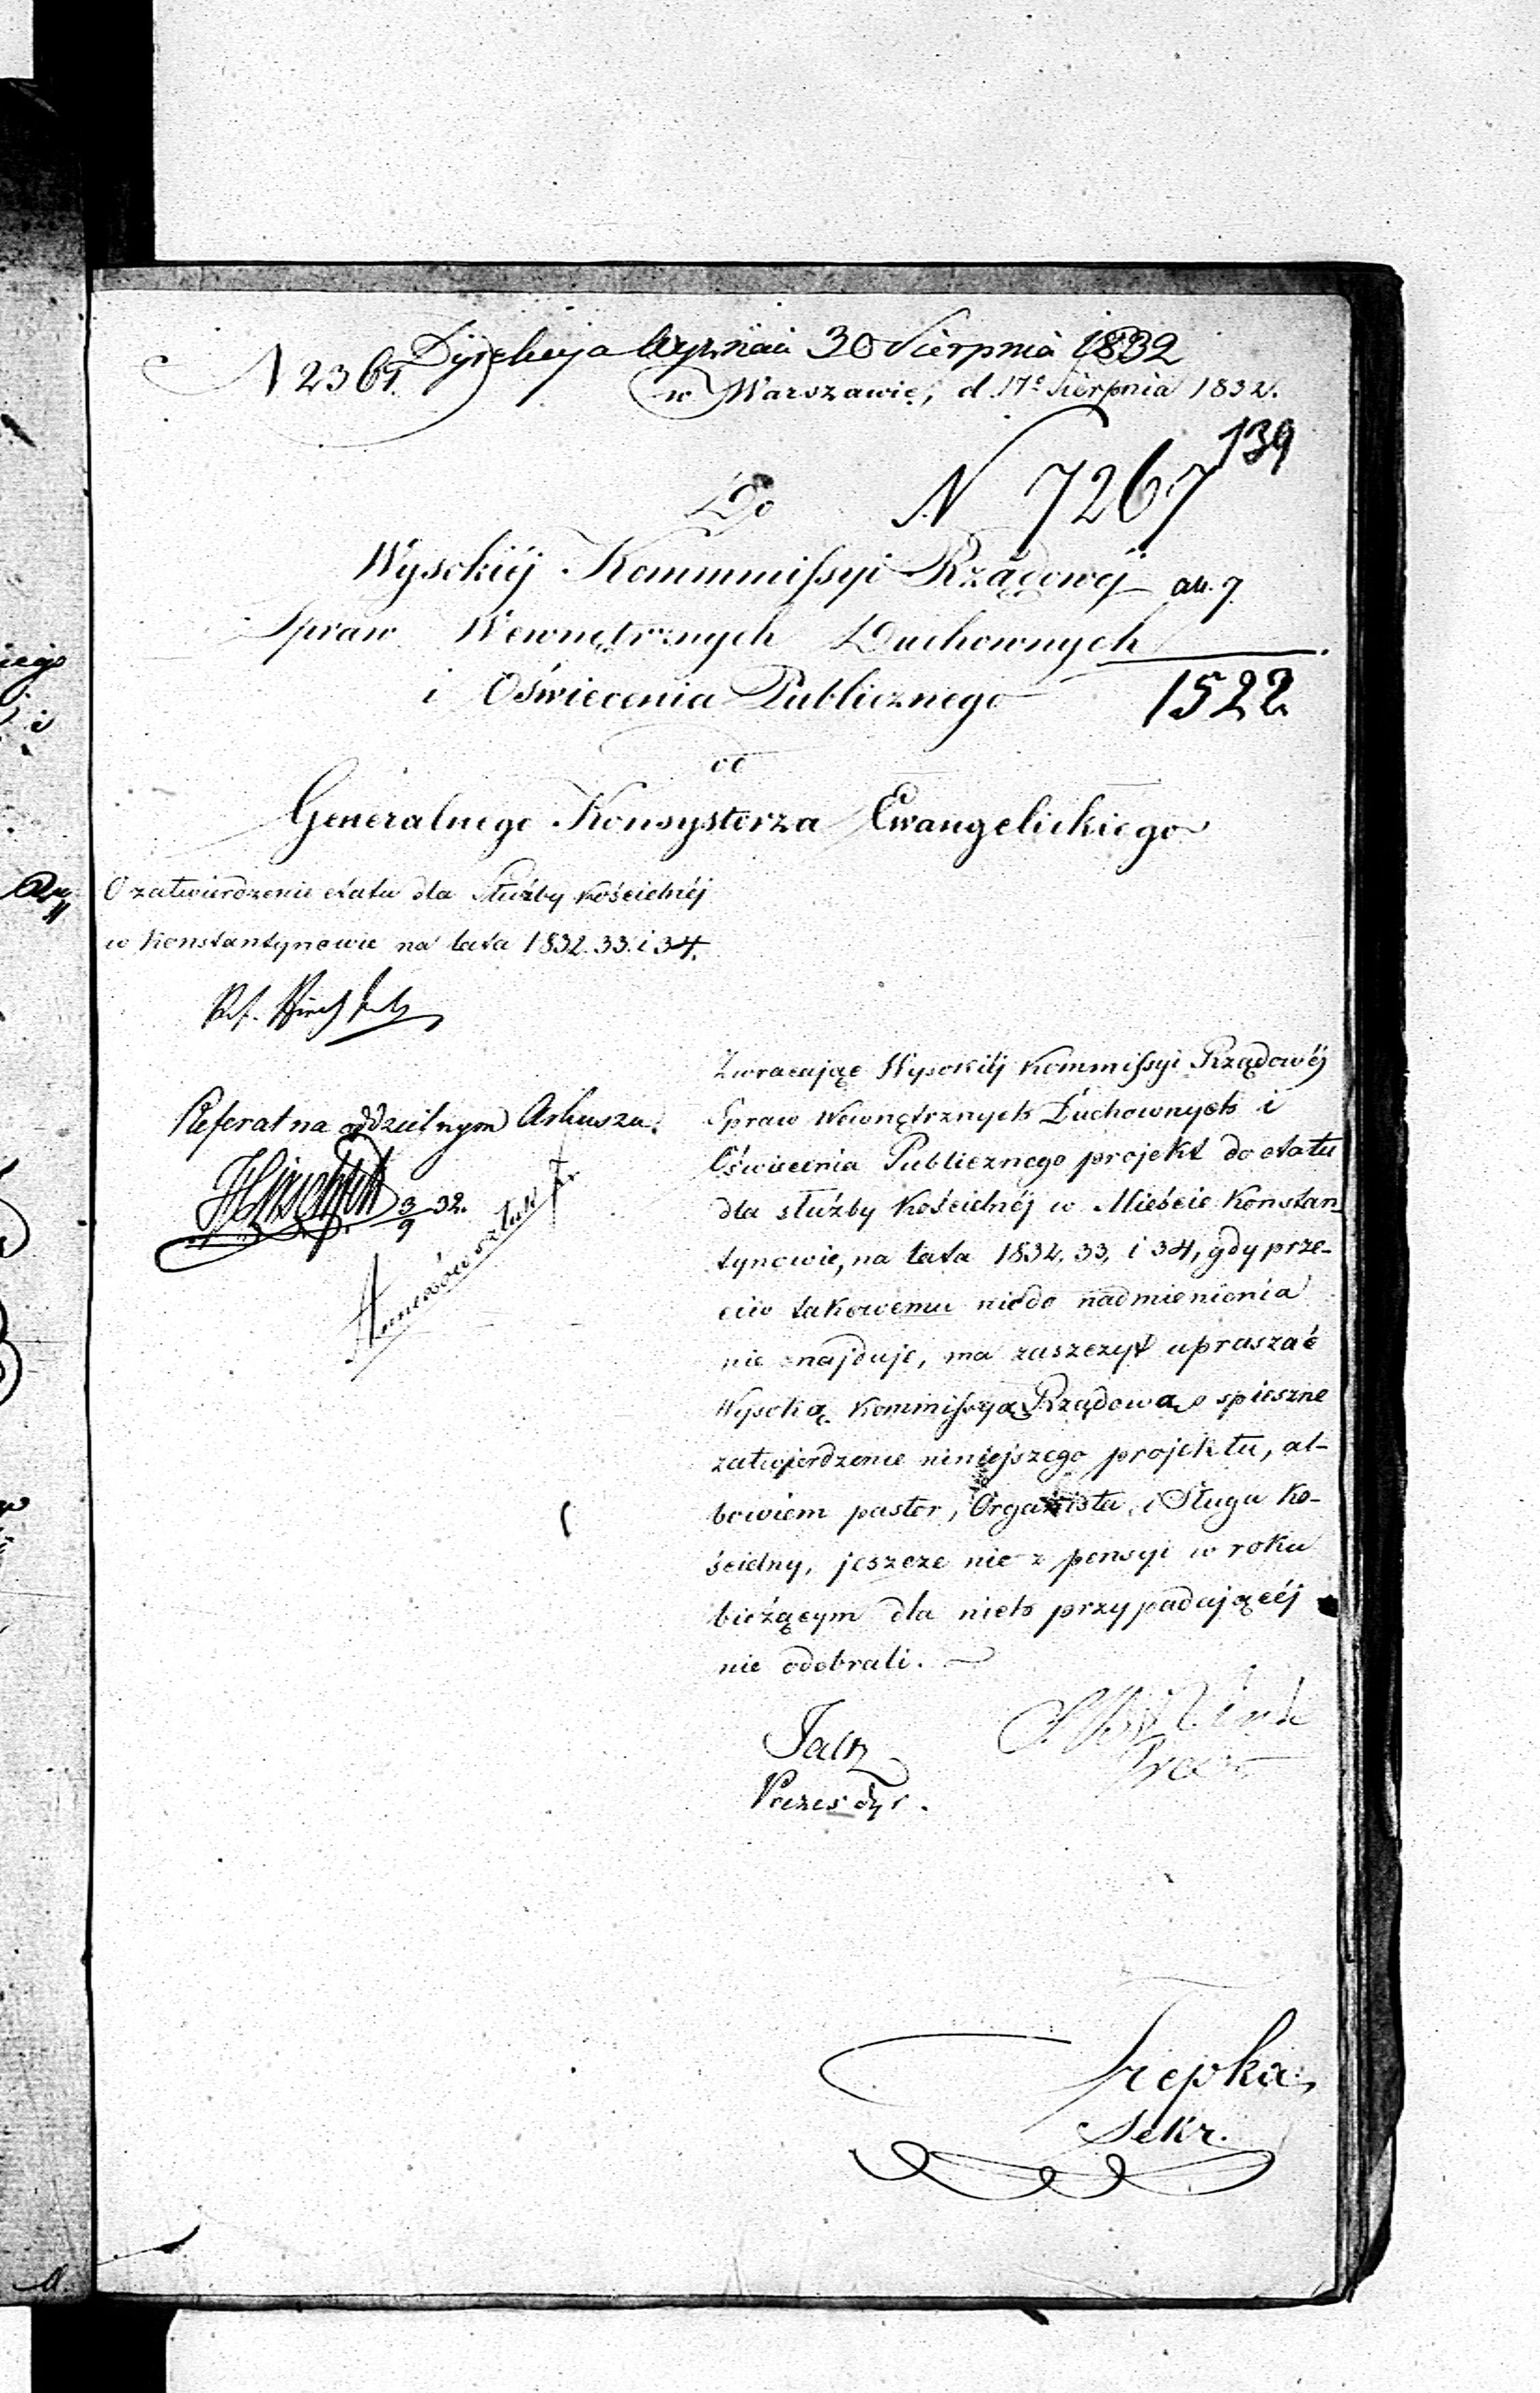 Dyrekcya Wyznań 30 Sierpnia 1832
N 2367.
w Warszawie, d. 17º Sierpnia 1832.
139
Do N 7267
Wysokiéj Kommmissyi Rządowéj
Spraw Wewnętrznych Duchownych
i Oświecenia Publicznego 1522
od
Generalnego Konsystorza Ewangelickiego
O zatwierdzenie etatu dla Służby Kościelnéj
w Konstantynowie na lata 1832. 33. i 34.
Ref.
Referat na oddzielnym Arkuszu.
3/9 32.
Annexów sztuk
Zwracając Wysokiéj Kommissyi Rządowéj
Spraw Wewnętrznych Duchownych i
Oświecenia Publicznego projekt do etatu
dla służby Kościelnéj w Mieście Konstan-
tynowie, na lata 1832, 33, i 34, gdy prze-
ciw takowemu nic do nadmienienia
nie znajduje, ma zaszczyt upraszać
Wysoką Kommissyą Rządową o spieszne
zatwierdzenie niniejszego projektu, al-
bowiem pastor, Organista, i Sługa Ko-
ścielny, jeszcze nic z pensyi w roku
bieżącym dla nich przypadającéj
nie odebrali.
Prezes
Trepka
Sekr.